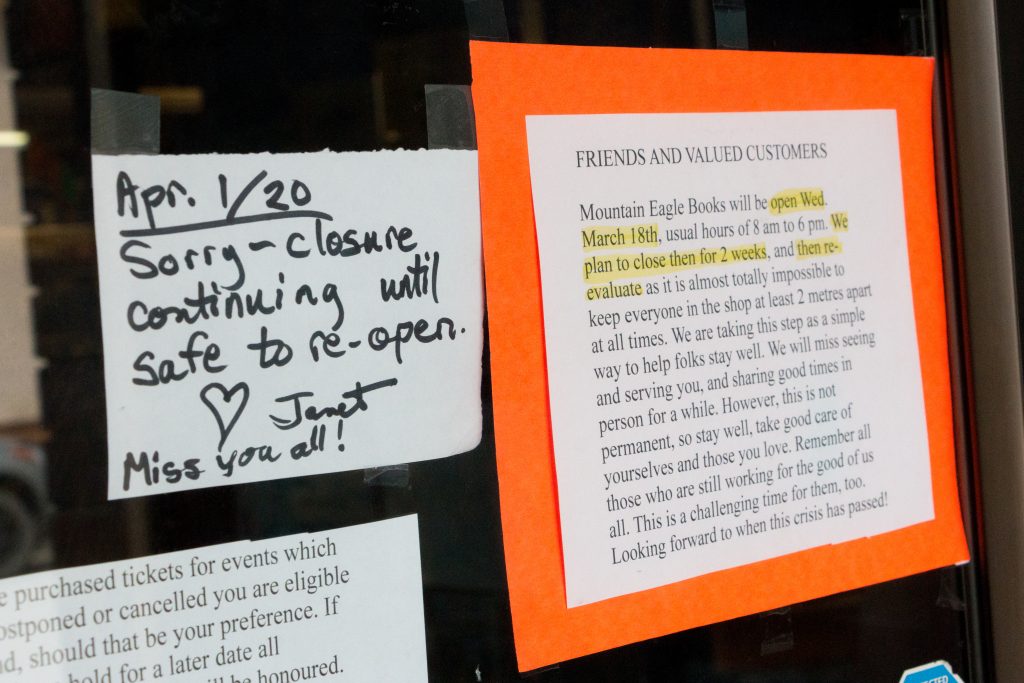 Apr. 1/20
Sorry - closure
continuing until
safe to re-open.
♡ Janet
Miss you all!
FRIENDS AND VALUED CUSTOMERS
Mountain Eagle Books will be open Wed.
March 18th, usual hours of 8 am to 6 pm. We
plan to close then for 2 weeks, and then re-
evaluate as it is almost totally impossible to
keep everyone in the shop at least 2 metres apart
at all times. We are taking this step as a simple
way to help folks stay well. We will miss seeing
and serving you, and sharing good times in
person for a while. However, this is not
permanent, so stay well, take good care of
yourselves and those you love. Remember all
those who are still working for the good of us
all. This is a challenging time for them, too.
Looking forward to when this crisis has passed!
purchased tickets for events which
or cancelled you are eligible
should that be your preference. If
hold for a later date all
be honoured.